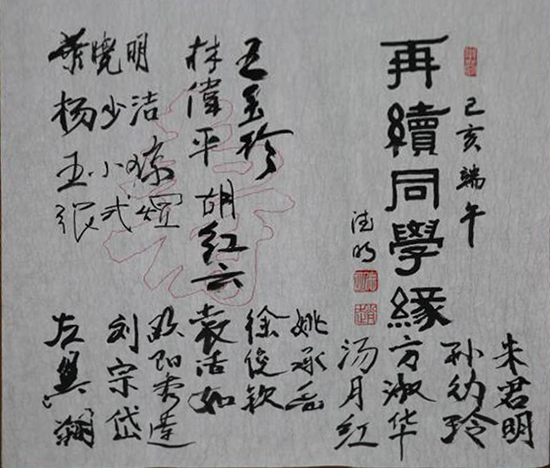 己亥端午
再續同學緣
德明
朱君明
孙幼玲
方淑华
汤月红
王玉珍
林偉平
胡红云
姚承岳
徐俊钦
袁洁如
欧阳秀莲
刘宗岱
左巽翔
叶晓明
杨少洁
王小琼
张式